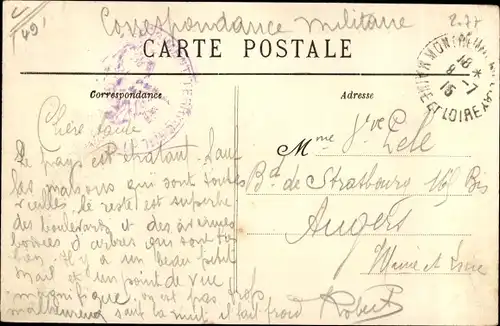 Correspondance militaire
CARTE POSTALE
Correspondance
Adresse
MONTREUIL
MAINE ET LOIRE
18 *
8 -7
15
Chère tante
Le pays est épatant. Sauf
les maisons qui sont toutes
vieilles, le reste est superbe
des boulevards et des avenues
bordées d'arbres qui sont très
bien. Il y a un beau petit
mail et un point de vue
magnifique, on est pas trop
malheureux sauf la nuit il fait froid Robert
Mme Vve
Bd de Strasbourg 16 Bis
Angers
Maine et Loire